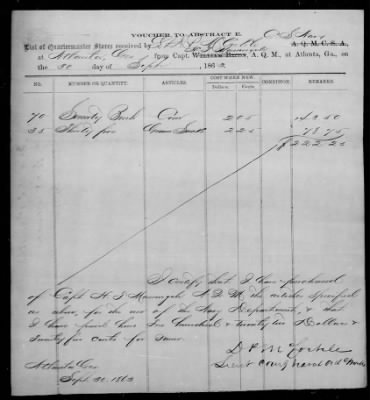 VOUCHER TO ABSTRACT E.
List of Quartermaster Stores received by C S Navy A. Q. M. C. S. A.,
at Atlanta, Geo from Capt. WILLIAM BACON, A. Q. M., at Atlanta, Ga., on
the 20 day of Sept, 1862
COST WHEN NEW.
NO. NUMBER OR QUANTITY. ARTICLES. Dollars. Cents. CONDITION. REMARKS.
70 Seventy Bush Corn 2 05 143 50
35 Thirty five 2 25 78 75
$222 25
I certify that I have purchased
of Capt H. T. A Q M, the articles specified
as above, for the use of the Navy Department, & that
I have paid him Two hundred & twenty two Dollars &
Twenty five cents for same.
D P McCorkle
Lieut Comg Naval Ord Works
Atlanta Geo
Sept. 20, 1862